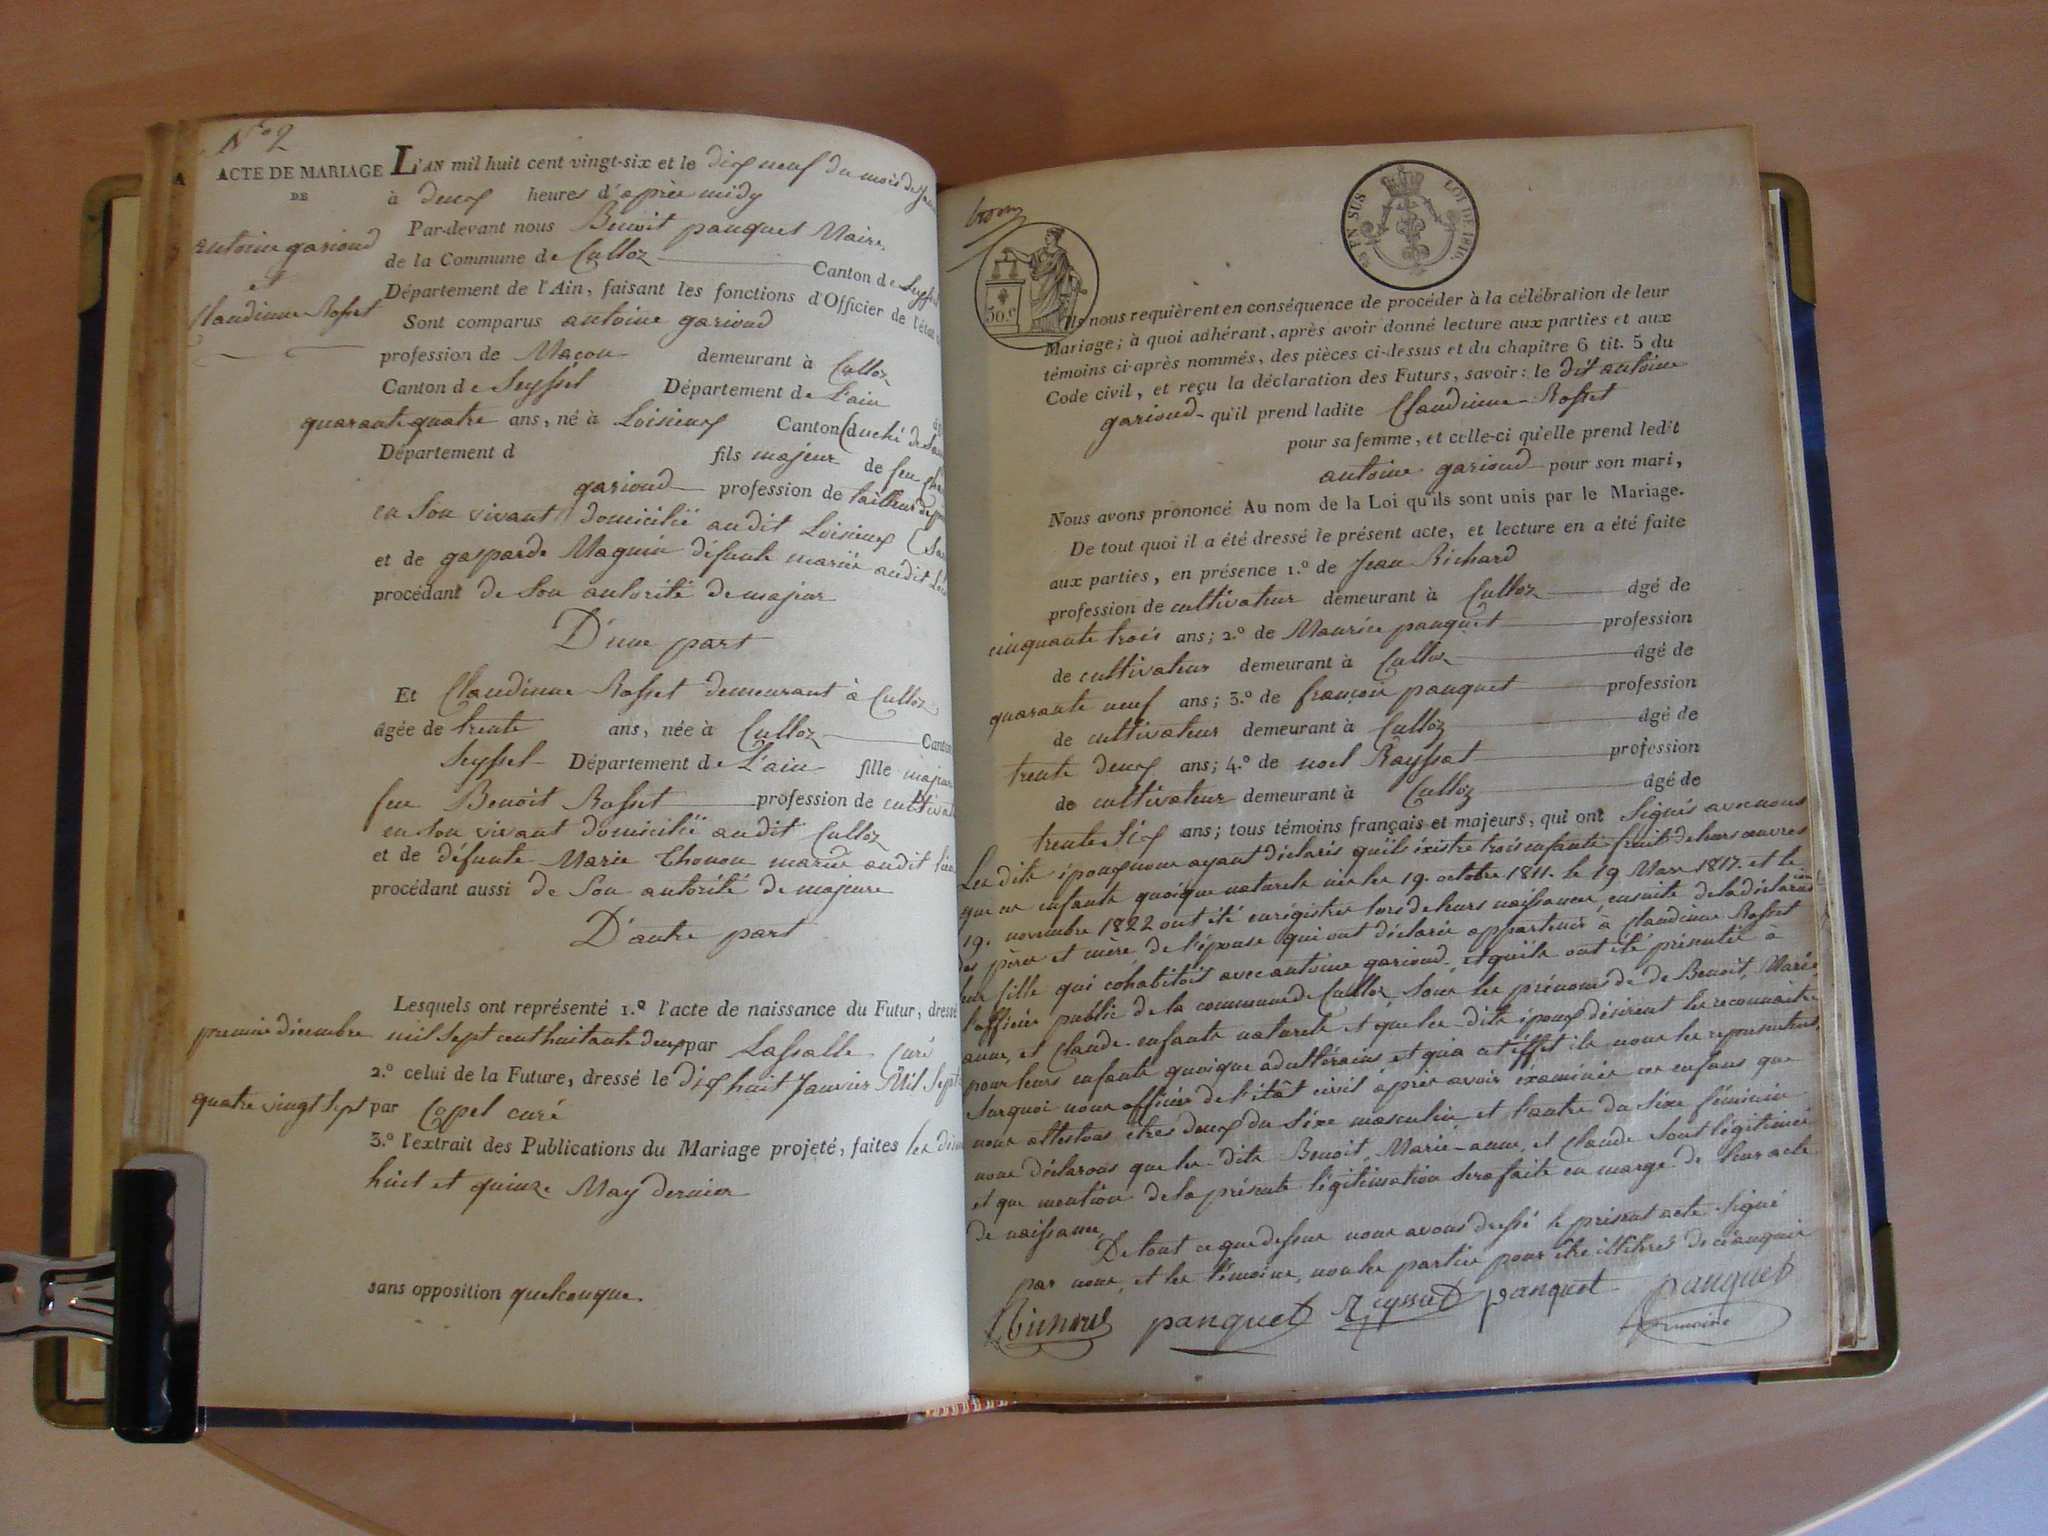 N.º 2
ACTE DE MARIAGE
DE
antoine garioud
et
Claudinne Rosset
L'AN mil huit cent vingt-six et le dix neuf du mois de
à deux heures d'après midy
Par-devant nous Benoit panquet Maire
de la Commune de Culloz Canton de Seyssel
Département de l'Ain, faisant les fonctions d'Officier de l'état
Sont comparus antoine garioud
profession de Maçon demeurant à Culloz
Canton de Seyssel Département de L'ain
quarante quatre ans, né à Loisieux Canton (duché de
Département d fils majeur de feu
garioud profession de tailleur de
en son vivant domicilié audit Loisieux
et de gasparde Maguin défunte mariée audit
procédant de son autorité de majeur
D'une part
Et Claudinne Rosset demeurant à Culloz
âgée de trente ans, née à Culloz Canton
Seyssel Département de L'ain fille majeure
feu Benoit Rosset profession de
en son vivant domicilié audit Culloz
et de défunte Marie Thonon mariée audit lieu
procédant aussi de son autorité de majeure
D'autre part
Lesquels ont représenté 1.º l'acte de naissance du Futur, dressé
premier décembre mil sept cent huitante deux par Lassalle Curé
2.º celui de la Future, dressé le dix huit Janvier Mil Sept
quatre vingt sept par Copel curé
3.º l'extrait des Publications du Mariage projeté, faites les
huit et quinze May dernier
sans opposition quelconque.
EN SUS
LOI DE 1816.
50.c
Ils nous requièrent en conséquence de procéder à la célébration de leur
Mariage; à quoi adhérant, après avoir donné lecture aux parties et aux
témoins ci-après nommés, des pièces ci-dessus et du chapitre 6 tit. 5 du
Code civil, et reçu la déclaration des Futurs, savoir: le dit antoine
garioud qu'il prend ladite Claudinne Rosset
pour sa femme, et celle-ci qu'elle prend ledit
antoine garioud pour son mari,
Nous avons prononcé Au nom de la Loi qu'ils sont unis par le Mariage.
De tout quoi il a été dressé le présent acte, et lecture en a été faite
aux parties, en présence 1.º de Jean Richard
profession de cultivateur demeurant à Culloz âgé de
cinquante trois ans; 2.º de Maurice panquet profession
de cultivateur demeurant à Culloz âgé de
quarante neuf ans; 3.º de françois panquet profession
de cultivateur demeurant à Culloz âgé de
trente deux ans; 4.º de noel Rayssat profession
de cultivateur demeurant à Culloz âgé de
trente six ans; tous témoins français et majeurs, qui ont signés avec nous
Les dits époux nous ayant déclarés qu'ils existe trois enfants fruit de leurs œuvres
que ces enfants quoique naturels nés les 19. octobre 1811. le 19 Mars 1817. et le
19. novembre 1822 ont été enrégistrés lors de leurs naissances, ensuite de la déclaration
des père et mère de l'épouse qui ont déclarés appartenir à Claudinne Rosset
leur fille qui cohabitoit avec antoine garioud, et qu'ils ont été présentés à
l'officier public de la commune de Culloz, sous les prénoms de de Benoit, Marie
anne, et Claude enfants naturels et que les dits époux désirent les reconnaitre
pour leurs enfants quoique adultérains et qu'a cet éffet ils nous les représentent,
Surquoi nous officier de l'état civil après avoir éxaminés ces enfans que
nous attestons êtres deux du sèxe masculin et l'autre du sèxe féminin
nous déclarons que les dits Benoit, Marie-anne, et Claude sont légitimés
et que mention de la présente légitimation sera faite en marge de leurs acte
de naissance,
De tout ce que dessus nous avons dressé le présent acte signé
par nous, et les témoins, non les parties pour être illétrés de ce enquis
panquet Rayssat panquet panquet
maire